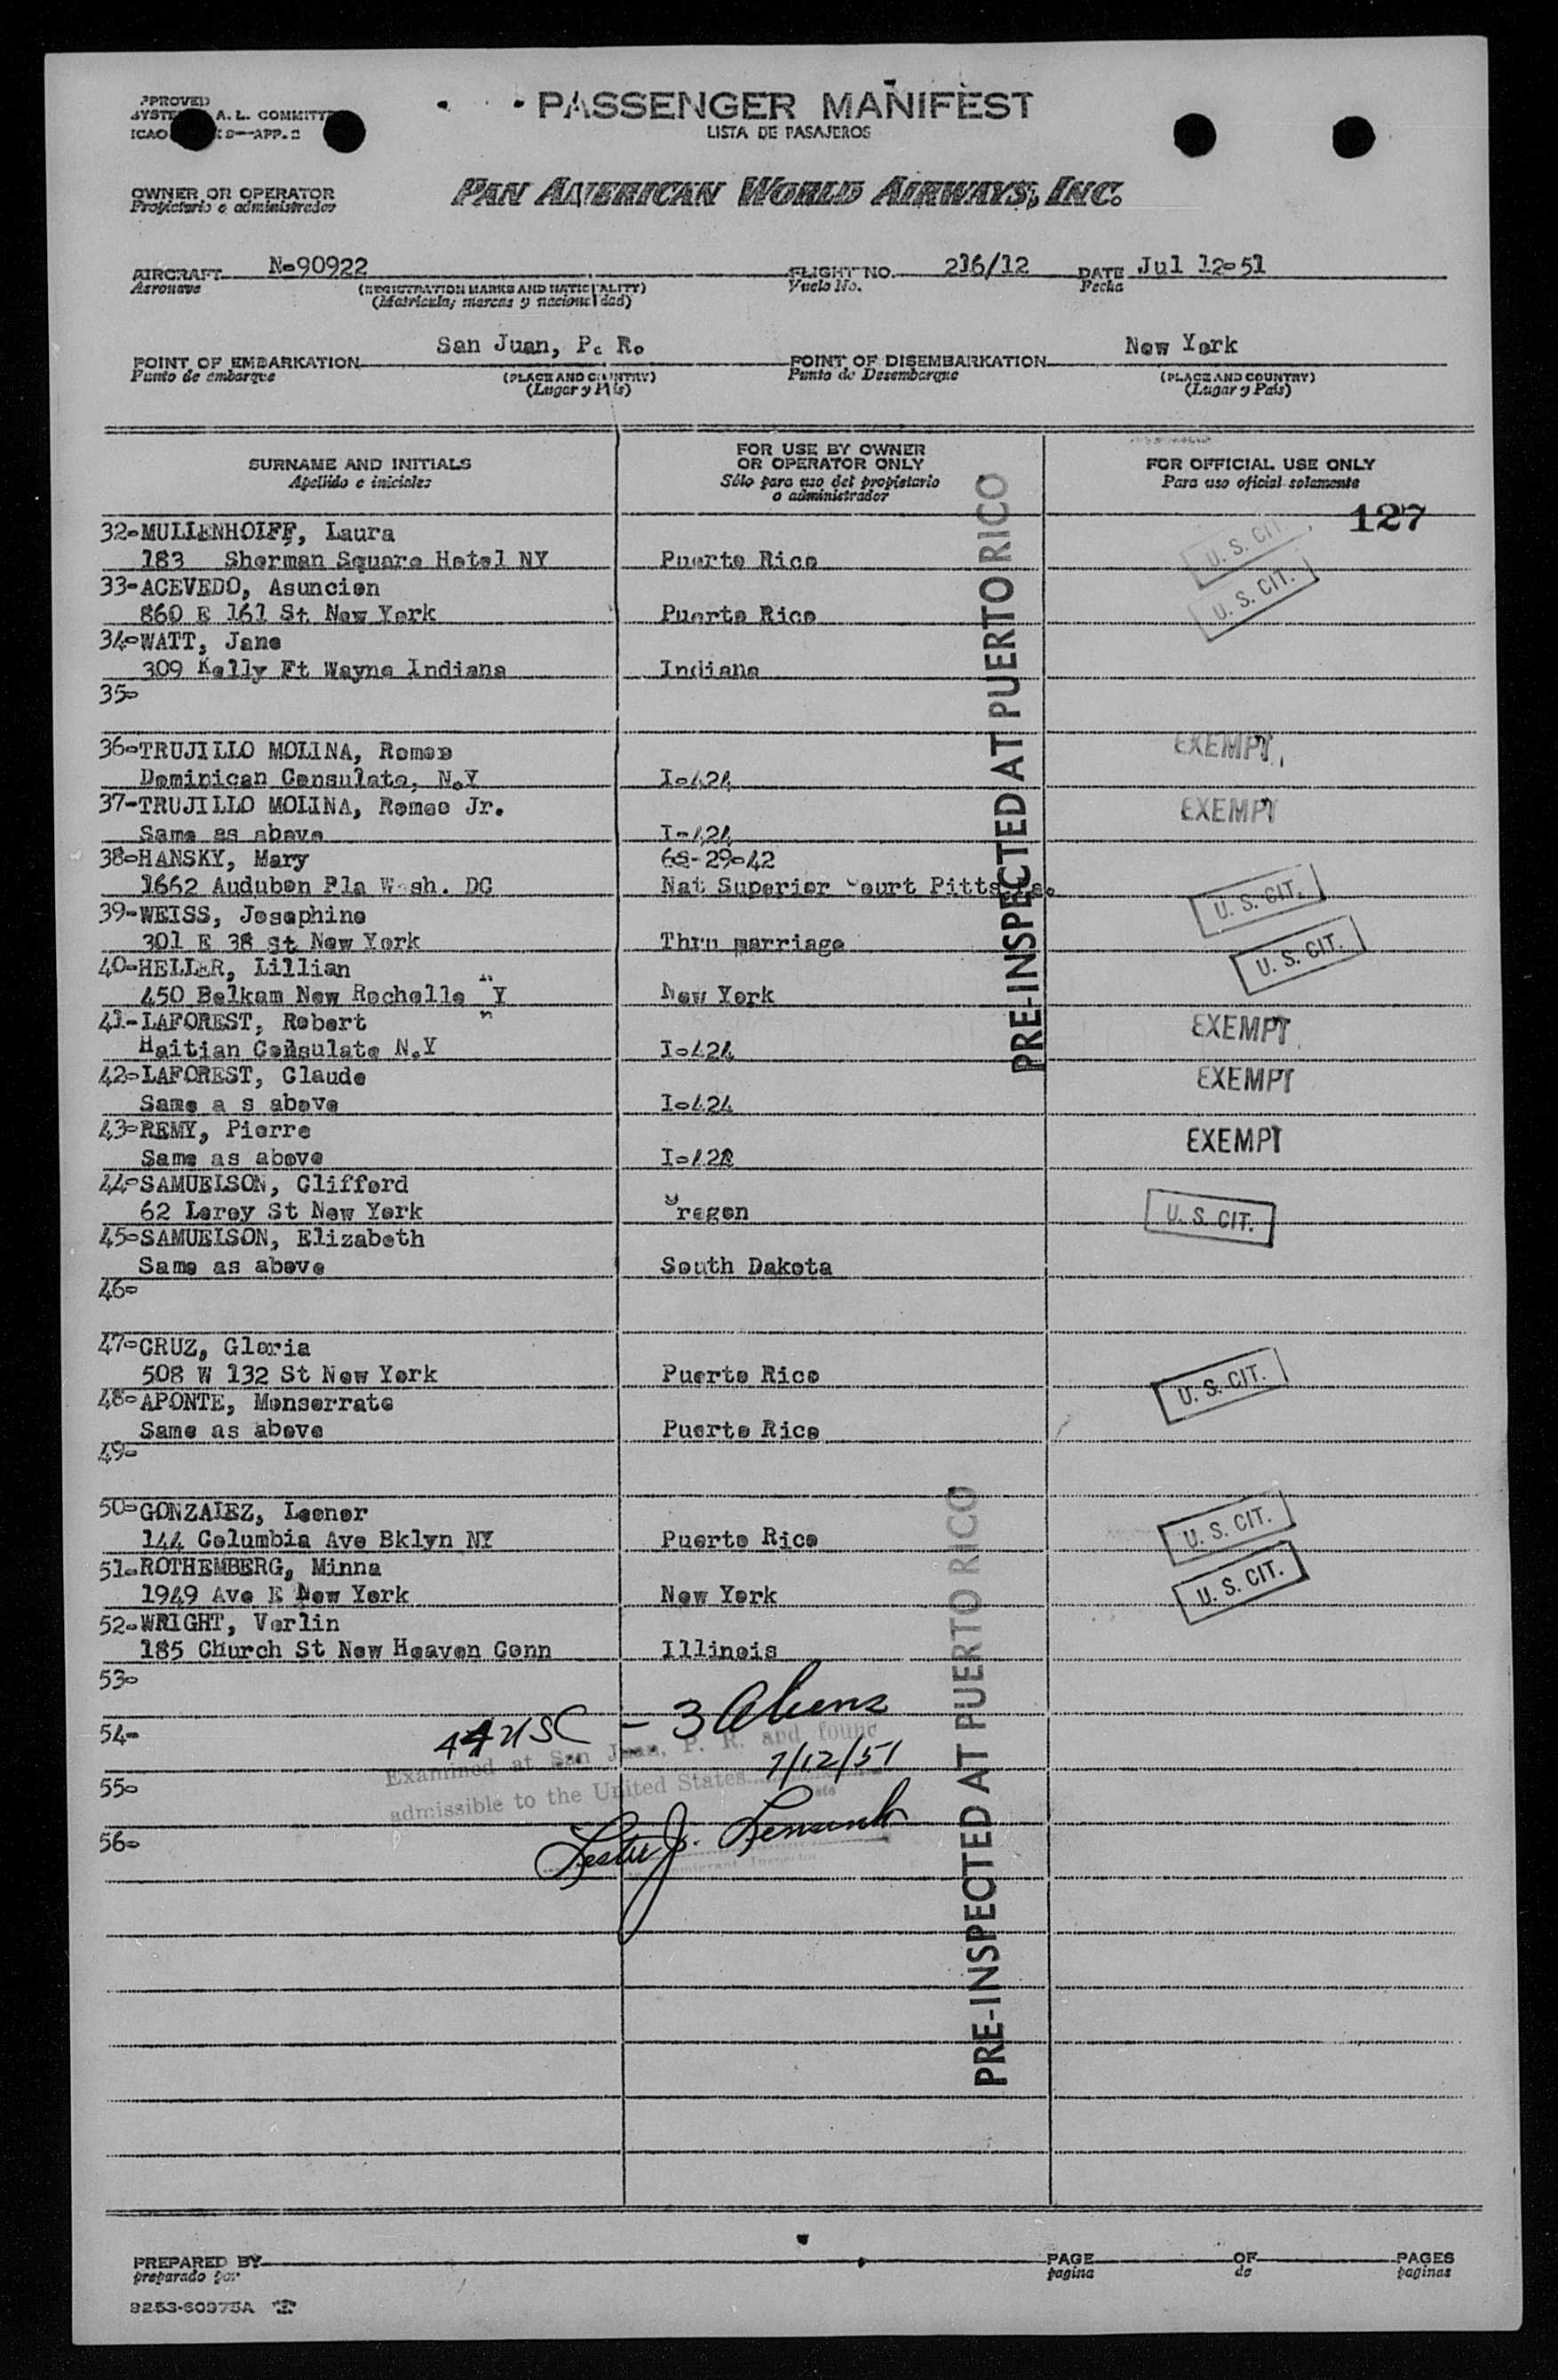 PASSENGER MANIFEST
LISTA DE PASAJEROS
APPROVED
A. L. COMMITTEE
ICAO 9-APP. 2
OWNER OR OPERATOR
Propietario o administrador
PAN AMERICAN WORLD AIRWAYS, INC.
AIRCRAFT N-90922 FLIGHT NO. 216/12 DATE Jul 12-51
Aeronave (REGISTRATION MARKS AND NATIONALITY) Vuelo No. Fecha
(Matricula; marcas y nacionalidad)
San Juan, P. R. New York
POINT OF EMBARKATION POINT OF DISEMBARKATION
Punto de embarque (PLACE AND COUNTRY) Punto de Desembarque (PLACE AND COUNTRY)
(Lugar y País) (Lugar y País)
SURNAME AND INITIALS
Apellido e iniciales
FOR USE BY OWNER
OR OPERATOR ONLY
Sólo para uso del propietario
o administrador
FOR OFFICIAL USE ONLY
Para uso oficial solamente
127
32-MULLENHOIFF, Laura
183 Sherman Square Hotel NY Puerto Rico U. S. CIT.
33-ACEVEDO, Asuncion
860 E 161 St New York Puerto Rico U. S. CIT.
34-WATT, Jane
309 Kelly Ft Wayne Indiana Indiana
35-
36-TRUJILLO MOLINA, Romeo EXEMPT
Dominican Consulate, N.Y I-424
37-TRUJILLO MOLINA, Romeo Jr. EXEMPT
Same as above I-424
38-HANSKY, Mary 68-29-42
1662 Audubon Pla Wash. DC Nat Superior Court Pitts Pa. U. S. CIT.
39-WEISS, Josephine
301 E 38 St New York Thru marriage U. S. CIT.
40-HELLER, Lillian
450 Belkam New Rochelle N Y New York
41-LAFOREST, Robert EXEMPT
Haitian Consulate N.Y I-424
42-LAFOREST, Claude EXEMPT
Same a s above I-424
43-REMY, Pierre EXEMPT
Same as above I-422
44-SAMUELSON, Clifford
62 Leroy St New York Oregon U. S. CIT.
45-SAMUELSON, Elizabeth
Same as above South Dakota
46-
47-CRUZ, Gloria
508 W 132 St New York Puerto Rico U. S. CIT.
48-APONTE, Monserrate
Same as above Puerto Rico
49-
50-GONZALEZ, Leonor
144 Columbia Ave Bklyn NY Puerto Rico U. S. CIT.
51-ROTHEMBERG, Minna
1949 Ave E New York New York U. S. CIT.
52-WRIGHT, Verlin
185 Church St New Heaven Conn Illinois
53-
54-
44 USC - 3 Aliens
Examined at San Juan, P. R. and found
7/12/51
55-
admissible to the United States
56-
Lester J.
Immigrant Inspector
PRE-INSPECTED AT PUERTO RICO
PRE-INSPECTED AT PUERTO RICO
PREPARED BY PAGE OF PAGES
preparado por pagina de paginas
9253-60975A